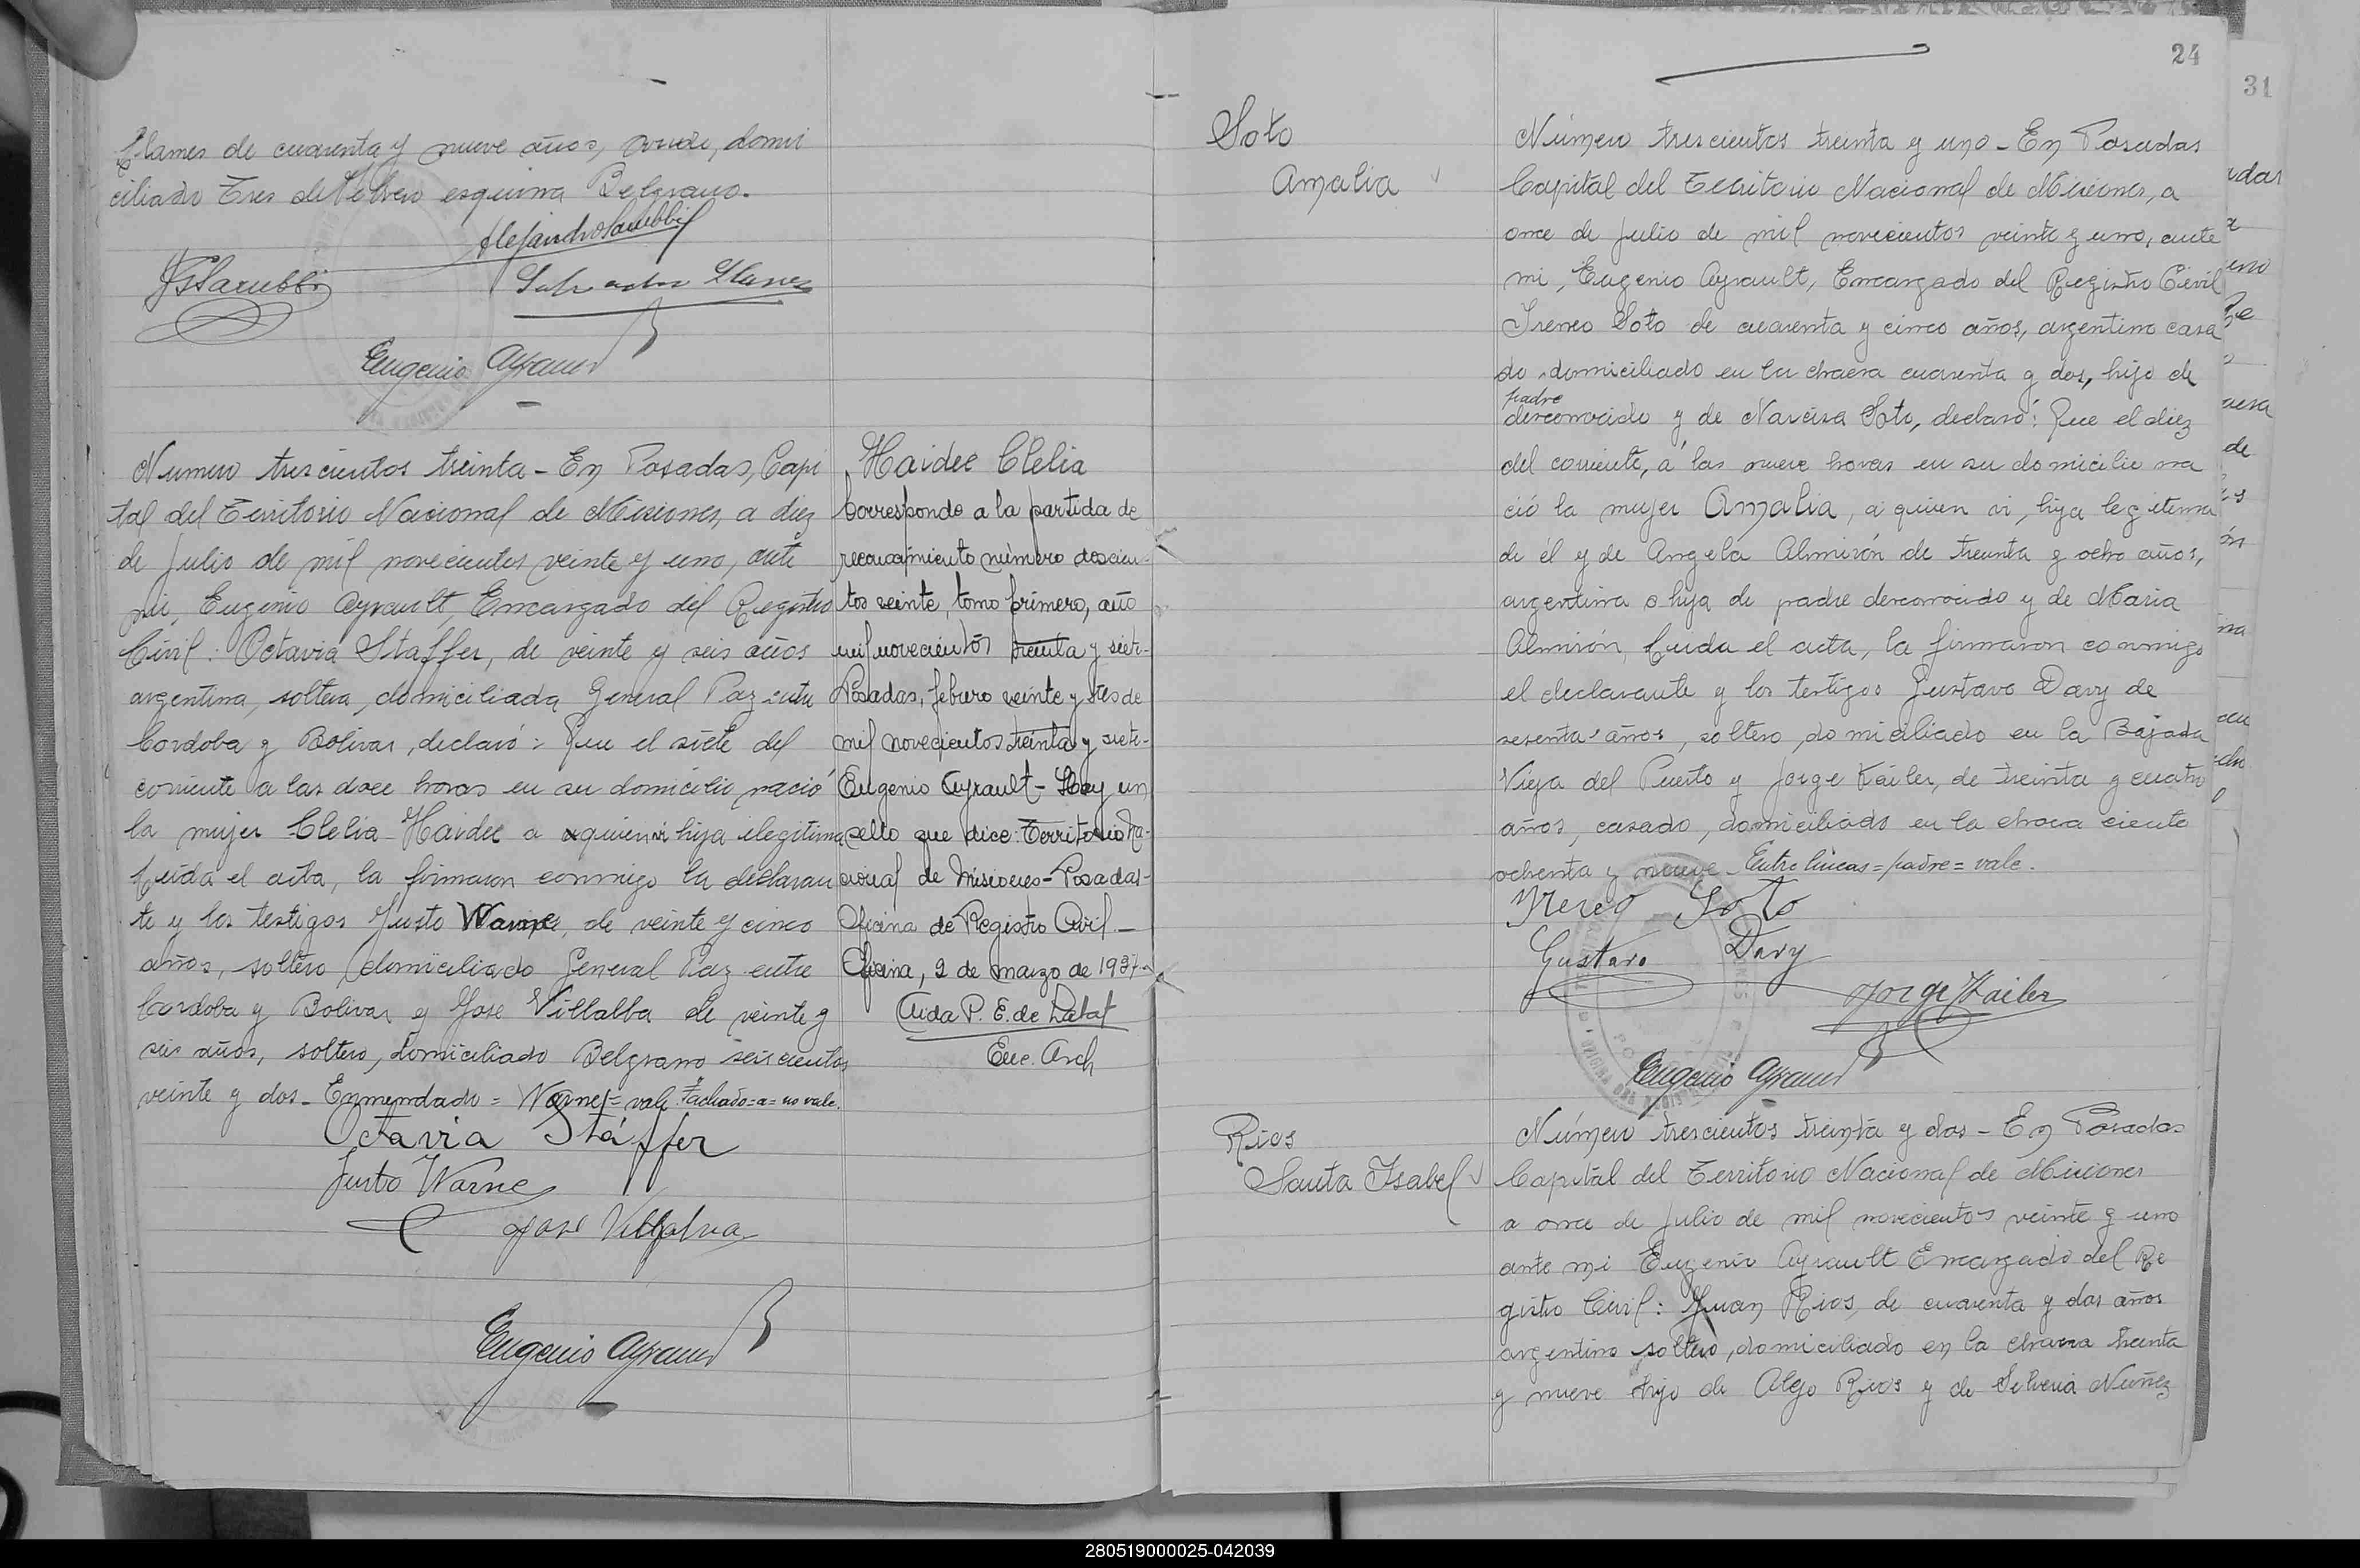 Llames de cuarenta y nueve años, viudo, domi
ciliado Tres de Febrero esquina Belgrano.
Alejandro Sarubbi
JSSarubbi
Salvador Llames
Eugenio Ayrault
Numero trescientos treinta - En Posadas, Capi
tal del Territorio Nacional de Misiones, a diez
de Julio de mil novecientos veinte y uno, ante
mi, Eugenio Ayrault, Encargado del Registro
Civil: Octavia Staffer, de veinte y seis años
argentina, soltera, domiciliada General Paz entre
Cordoba y Bolivar, declaró: Que el siete del
corriente a las doce horas en su domicilio nació
la mujer Clelia Haidee a quien vi hija ilegitima
Leida el acta, la firmaron conmigo la declaran
te y los testigos Justo Warnes, de veinte y cinco
años, soltero, domiciliado General Paz entre
Cordoba y Bolivar y Jose Villalba de veinte y
seis años, soltero, domiciliado Belgrano seiscientos
veinte y dos - Enmendado = Warnes = vale. Tachado = a = no vale.
Octavia Stáffer
Justo Warnes
José Villalva
Eugenio Ayrault
Haidee Clelia
Corresponde a la partida de
reconocimiento número doscien-
tos veinte, tomo primero, año
mil novecientos treinta y siete-
Posadas, febrero veinte y tres de
mil novecientos treinta y siete-
Eugenio Ayrault - Hay un
sello que dice: Territorio Na-
cional de Misiones - Posadas -
Oficina de Registro Civil -
Oficina, 2 de marzo de 1937 -
Aida P. E. de
Enc. Arch
24
31
Soto
Amalia
Número trescientos treinta y uno - En Posadas
Capital del Territorio Nacional de Misiones, a
once de Julio de mil novecientos veinte y uno, ante
mi, Eugenio Ayrault, Encargado del Registro Civil
Ireneo Soto de cuarenta y cinco años, argentino casa
do, domiciliado en la chacra cuarenta y dos, hijo de
padre
desconocido y de Narcisa Soto, declaró: Que el diez
del corriente, á las nueve horas en su domicilio na
ció la mujer Amalia, a quien vi, hija legitima
de él y de Angela Almirón de treinta y ocho años,
argentina e hija de padre desconocido y de Maria
Almirón, Leida el acta, la firmaron conmigo
el declarante y los testigos Gustavo Davy de
sesenta años, soltero, domiciliado en la Bajada
Vieja del Puerto y Jorge Kailer, de treinta y cuatro
años, casado, domiciliado en la chacra ciento
ochenta y nueve - Entre lineas = padre = vale.
Yreneo Soto
Gustavo Davy
Jorge Kailer
Eugenio Ayrault
Rios
Santa Isabel
Número trescientos treinta y dos - En Posadas
Capital del Territorio Nacional de Misiones
a once de Julio de mil novecientos veinte y uno
ante mi Eugenio Ayrault Encargado del Re
gistro Civil: Juan Rios, de cuarenta y dos años
argentino, soltero, domiciliado en la chacra treinta
y nueve hijo de Alejo Rios y de Silveria Nuñez
280519000025-042039